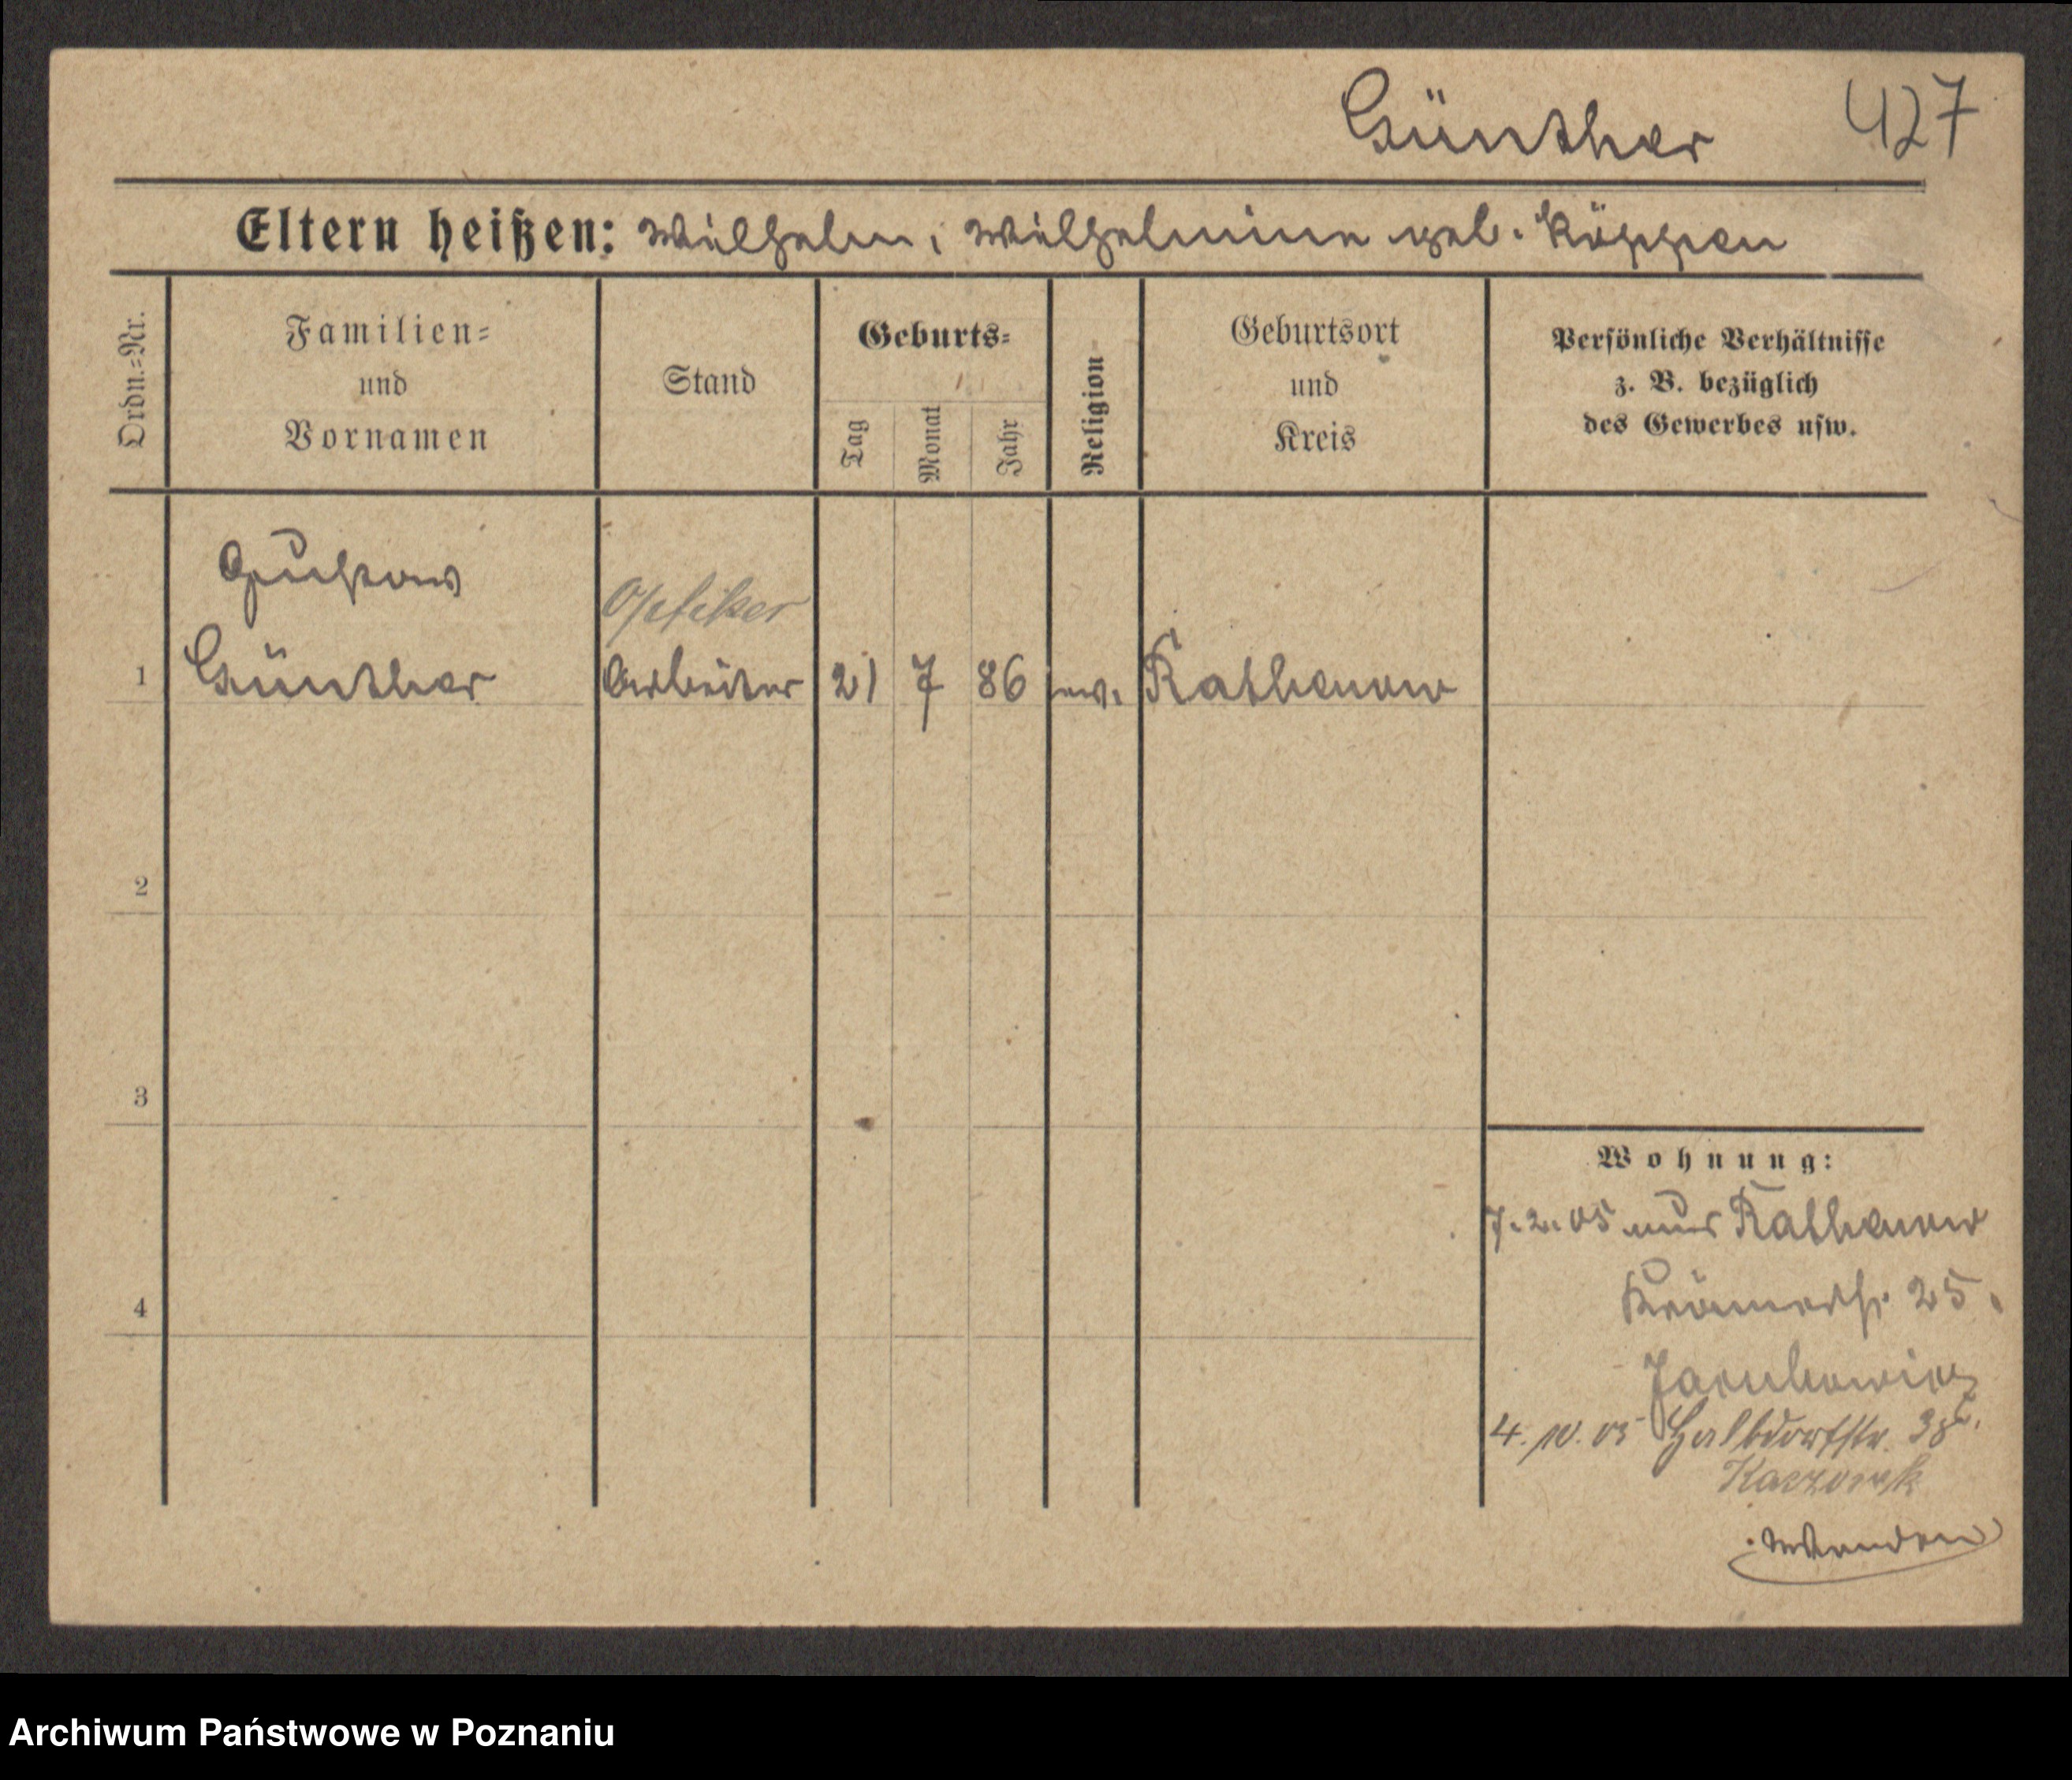 Günther 427
Eltern heißen: Wilhelm, Wilhelmine geb. Köppen
Ordn.=Nr. Familien= und Vornamen Stand Geburts= Tag Monat Jahr Religion Geburtsort und Kreis Persönliche Verhältnisse z. B. bezüglich des Gewerbes usw.
Gustav
Optiker
1 Günther Arbeiter 21 7 86 ev. Rathenow
2
3
Wohnung:
7.2.05 aus Rathenow
4
Krämerstr. 25.
4.10.05 Halbdorfstr.
Wenden
Archiwum Państwowe w Poznaniu